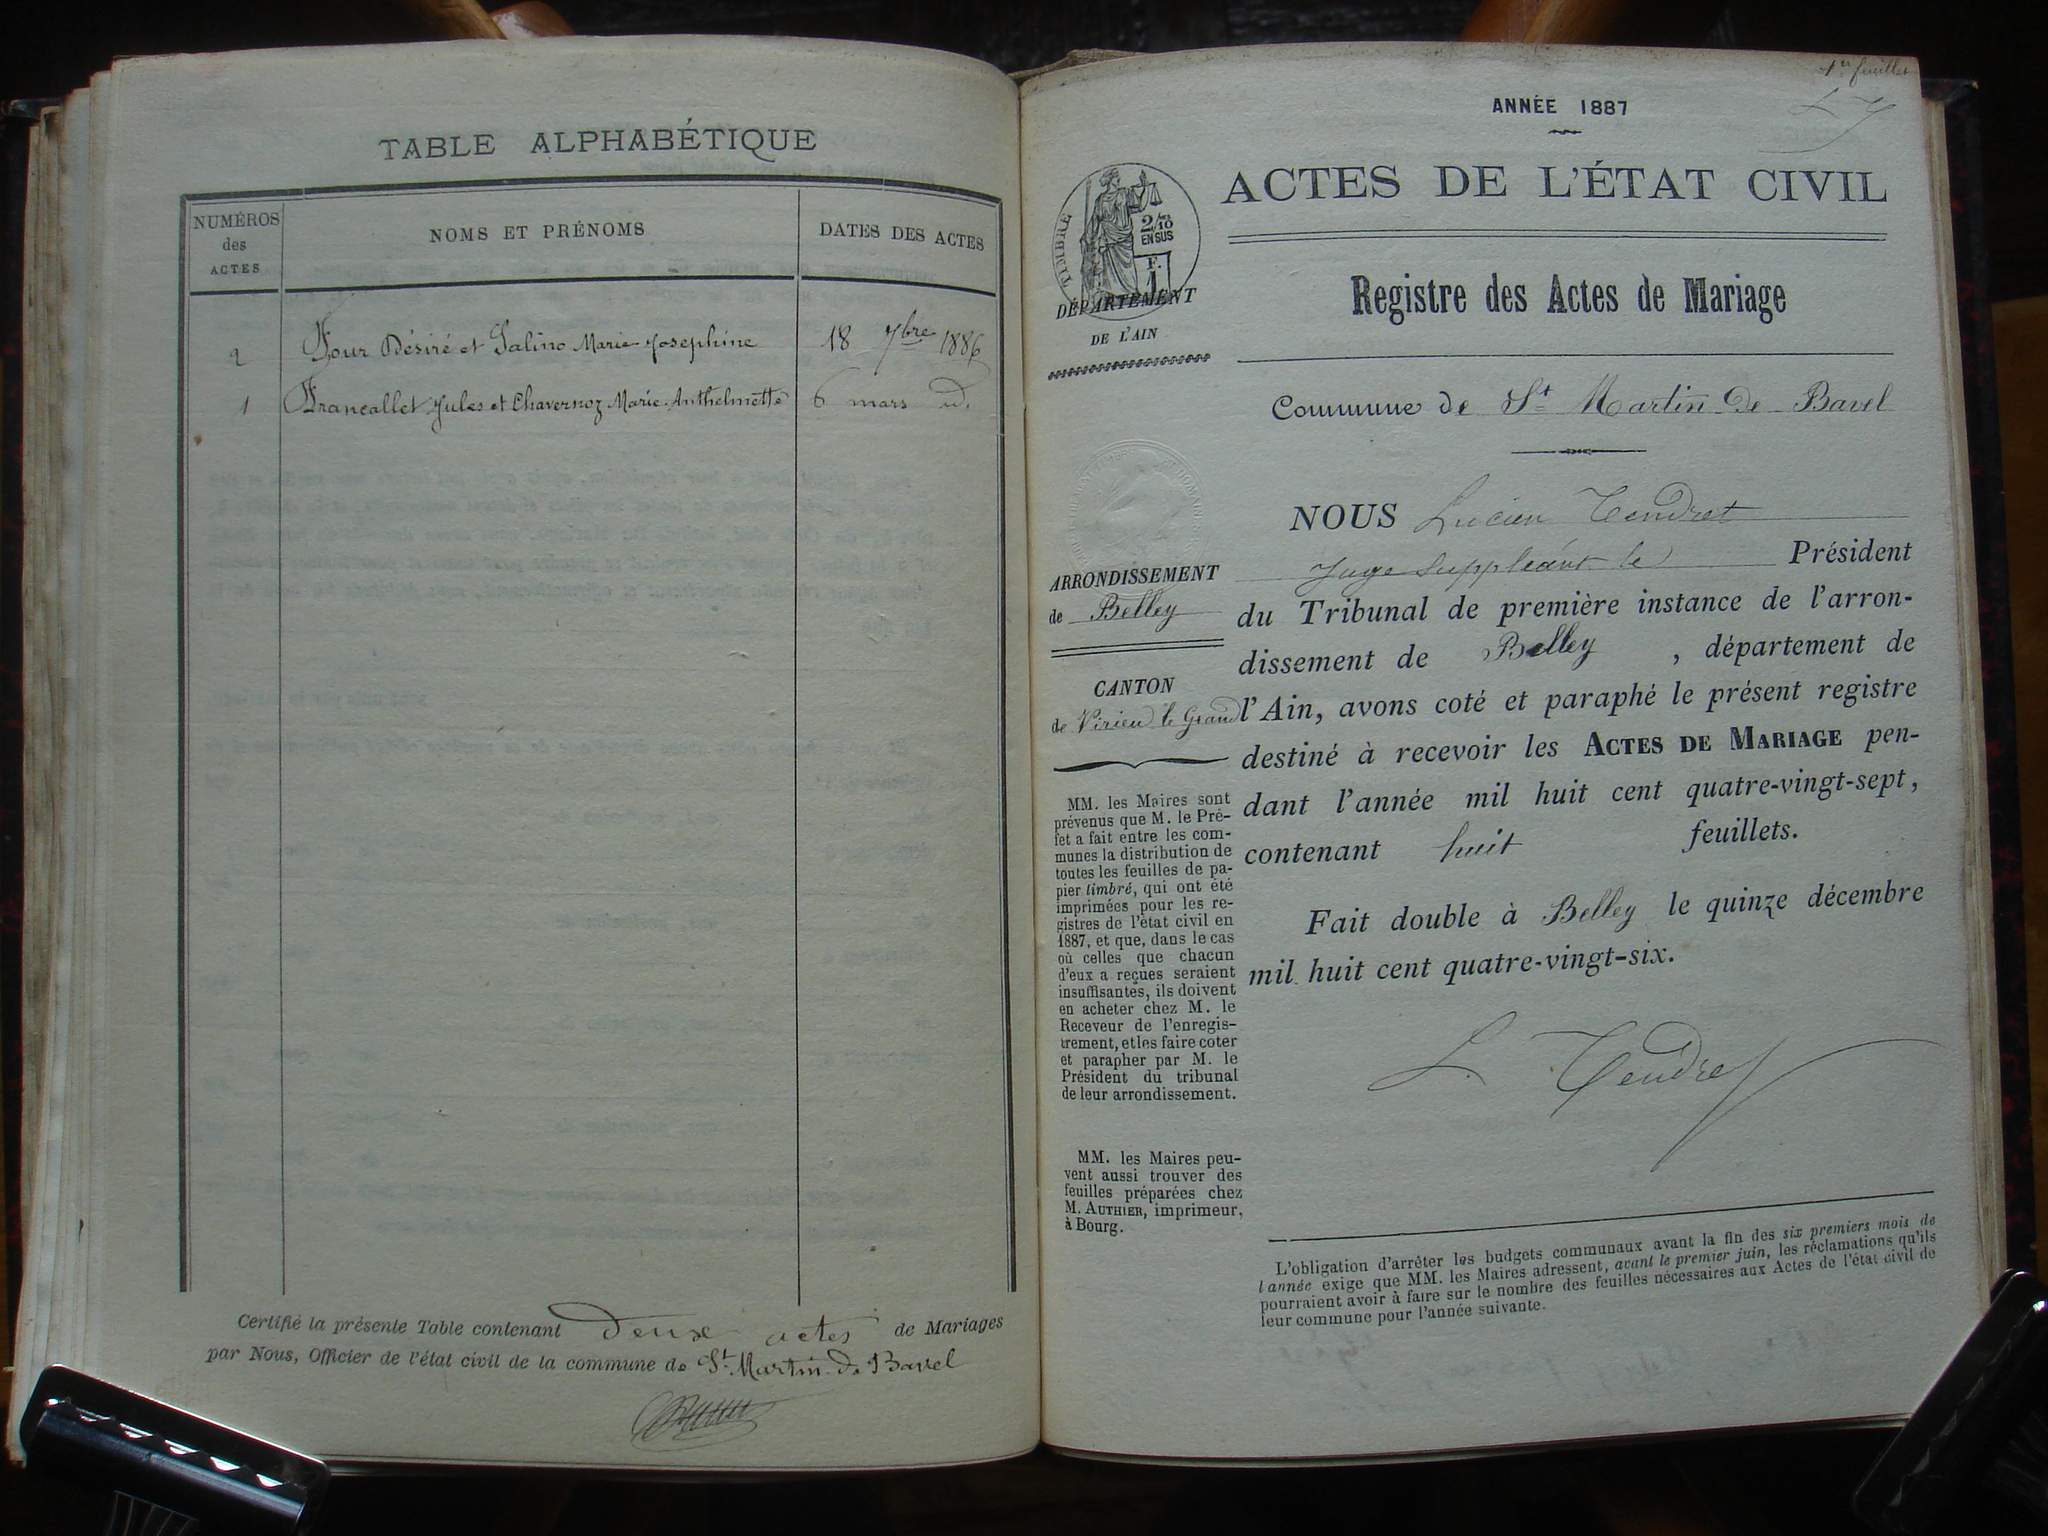 TABLE ALPHABÉTIQUE
NUMÉROS
des
ACTES
NOMS ET PRÉNOMS
DATES DES ACTES
2 Four Désiré et Salino Marie Josephine 18 7bre 1886
1 Francallet Jules et Chavernoz Marie-Anthelmette 6 mars id.
Certifié la présente Table contenant deux actes de Mariages
par Nous, Officier de l'état civil de la commune de St Martin de Bavel
1er feuillet
ANNÉE 1887
ACTES DE L'ÉTAT CIVIL
Registre des Actes de Mariage
Commune de St Martin de Bavel
TIMBRE
2/10
EN SUS
F.
DÉPARTEMENT
DE L'AIN
ARRONDISSEMENT
de Belley
CANTON
de Virieu le Grand
MM. les Maires sont
prévenus que M. le Pré-
fet a fait entre les com-
munes la distribution de
toutes les feuilles de pa-
pier timbré, qui ont été
imprimées pour les re-
gistres de l'état civil en
1887, et que, dans le cas
où celles que chacun
d'eux a reçues seraient
insuffisantes, ils doivent
en acheter chez M. le
Receveur de l'enregis-
trement, et les faire coter
et parapher par M. le
Président du tribunal
de leur arrondissement.
MM. les Maires peu-
vent aussi trouver des
feuilles préparées chez
M. AUTHIER, imprimeur,
à Bourg.
NOUS Lucien Tendret
Juge Suppléant le Président
du Tribunal de première instance de l'arron-
dissement de Belley , département de
l'Ain, avons coté et paraphé le présent registre
destiné à recevoir les ACTES DE MARIAGE pen-
dant l'année mil huit cent quatre-vingt-sept,
contenant huit feuillets.
Fait double à Belley le quinze décembre
mil huit cent quatre-vingt-six.
L. Tendret
L'obligation d'arrêter les budgets communaux avant la fin des six premiers mois de
l'année exige que MM. les Maires adressent, avant le premier juin, les réclamations qu'ils
pourraient avoir à faire sur le nombre des feuilles nécessaires aux Actes de l'état civil de
leur commune pour l'année suivante.